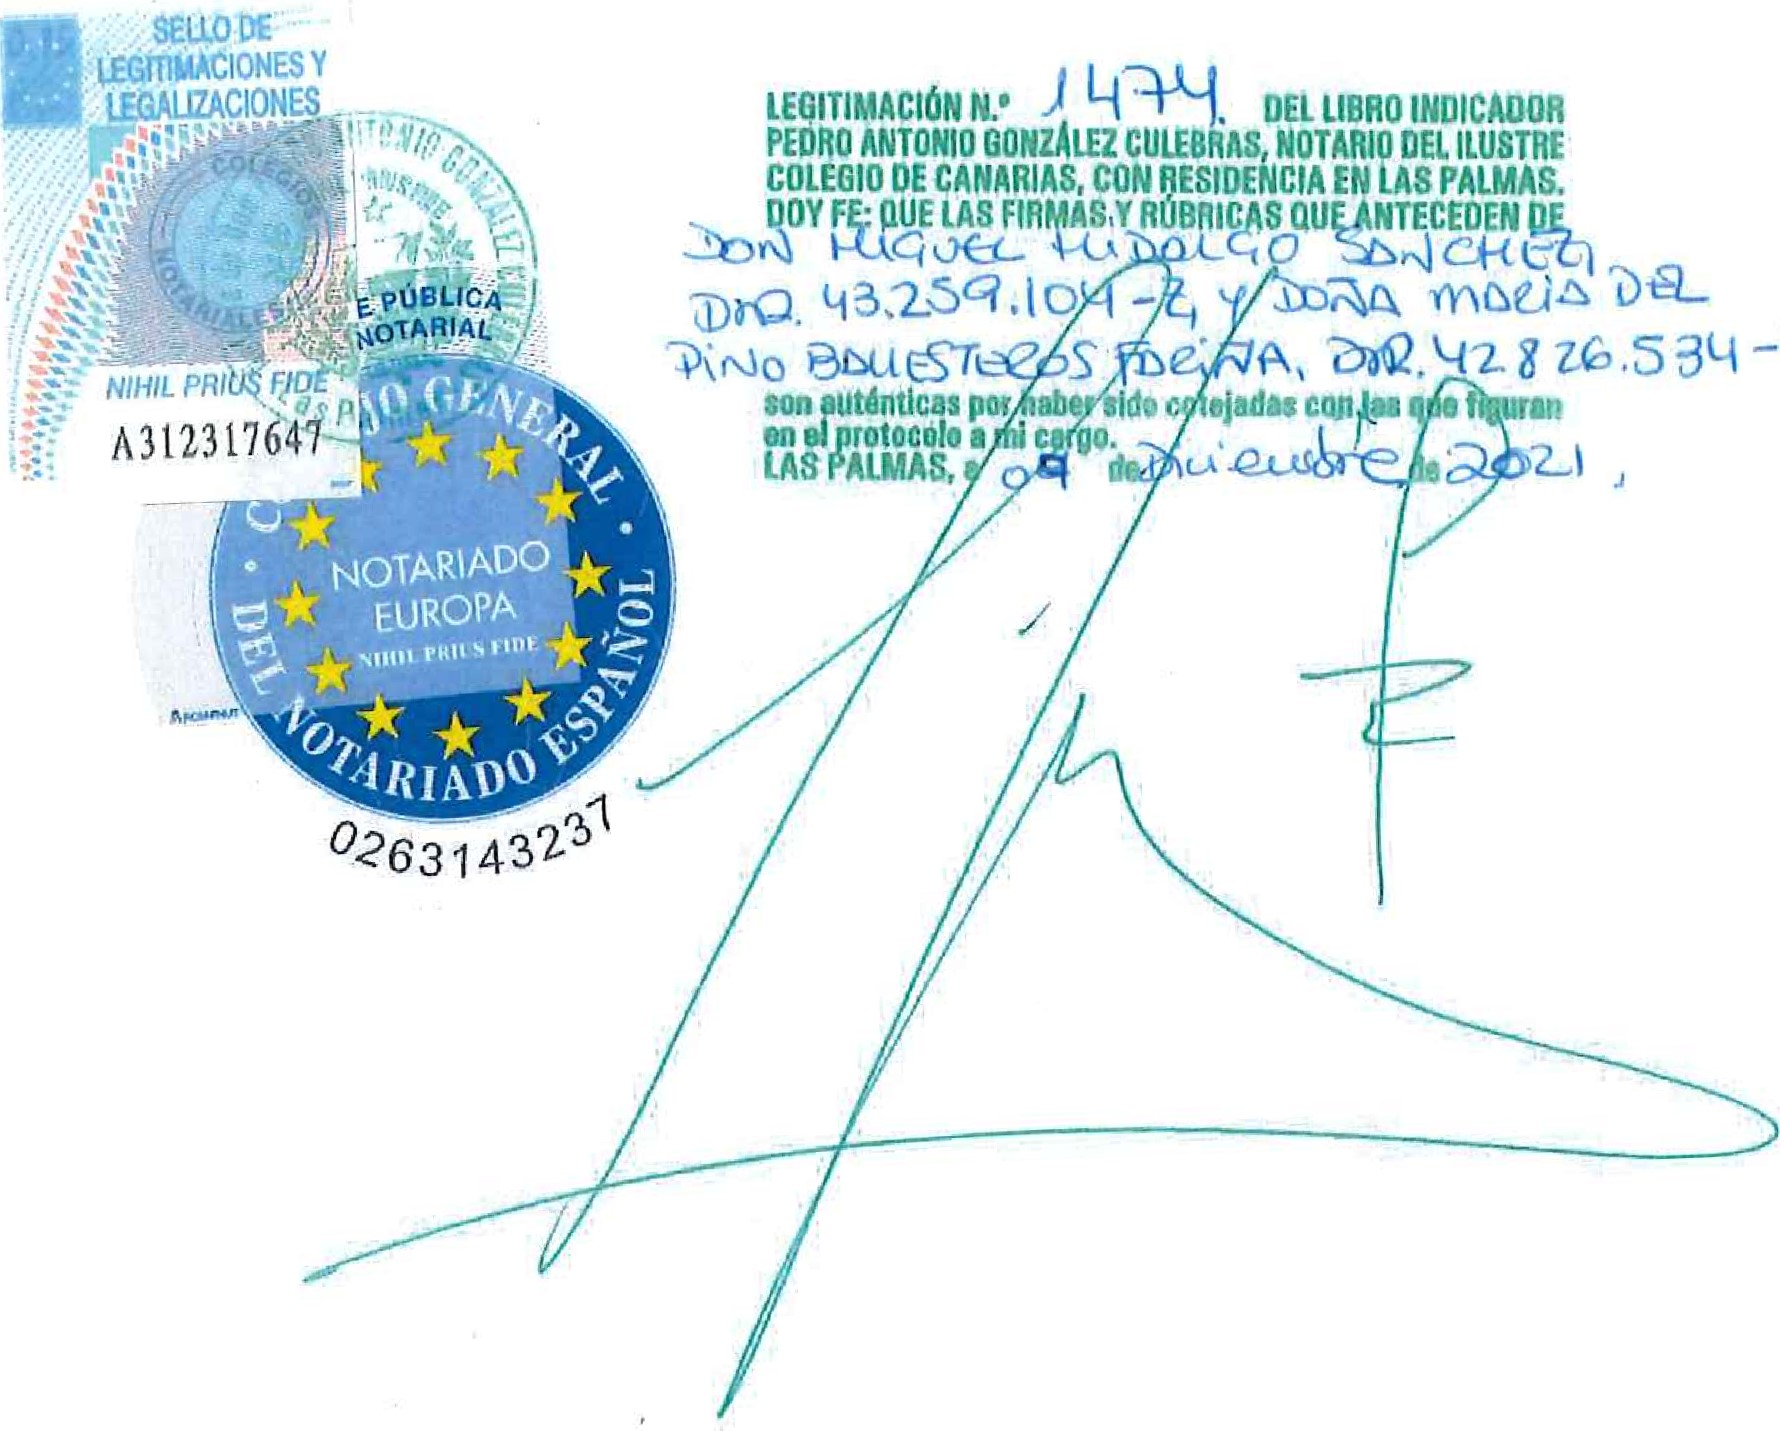 SELLO DE
LEGITIMACIONES Y
LEGALIZACIONES
COLEGIOS
NOTARIALES
NIHIL PRIUS FIDE
A312317647
ANTONIO GONZALEZ
E PÚBLICA
NOTARIAL
JO GENERAL
DEL NOTARIADO ESPAÑOL
NOTARIADO
EUROPA
NIHIL PRIUS FIDE
0263143237
LEGITIMACIÓN N.º 1474. DEL LIBRO INDICADOR
PEDRO ANTONIO GONZÁLEZ CULEBRAS, NOTARIO DEL ILUSTRE
COLEGIO DE CANARIAS, CON RESIDENCIA EN LAS PALMAS.
DOY FE: QUE LAS FIRMAS Y RÚBRICAS QUE ANTECEDEN DE
DON MIGUEL HIDALGO SANCHEZ,
DNI. 43.259.104-Z, Y DOÑA MARIA DEL
PINO BALLESTEROS FARIÑA, DNI. 42.826.534-
son auténticas por haber sido cotejadas con las que figuran
en el protocolo a mi cargo.
LAS PALMAS, a 09 de Diciembre de 2021,